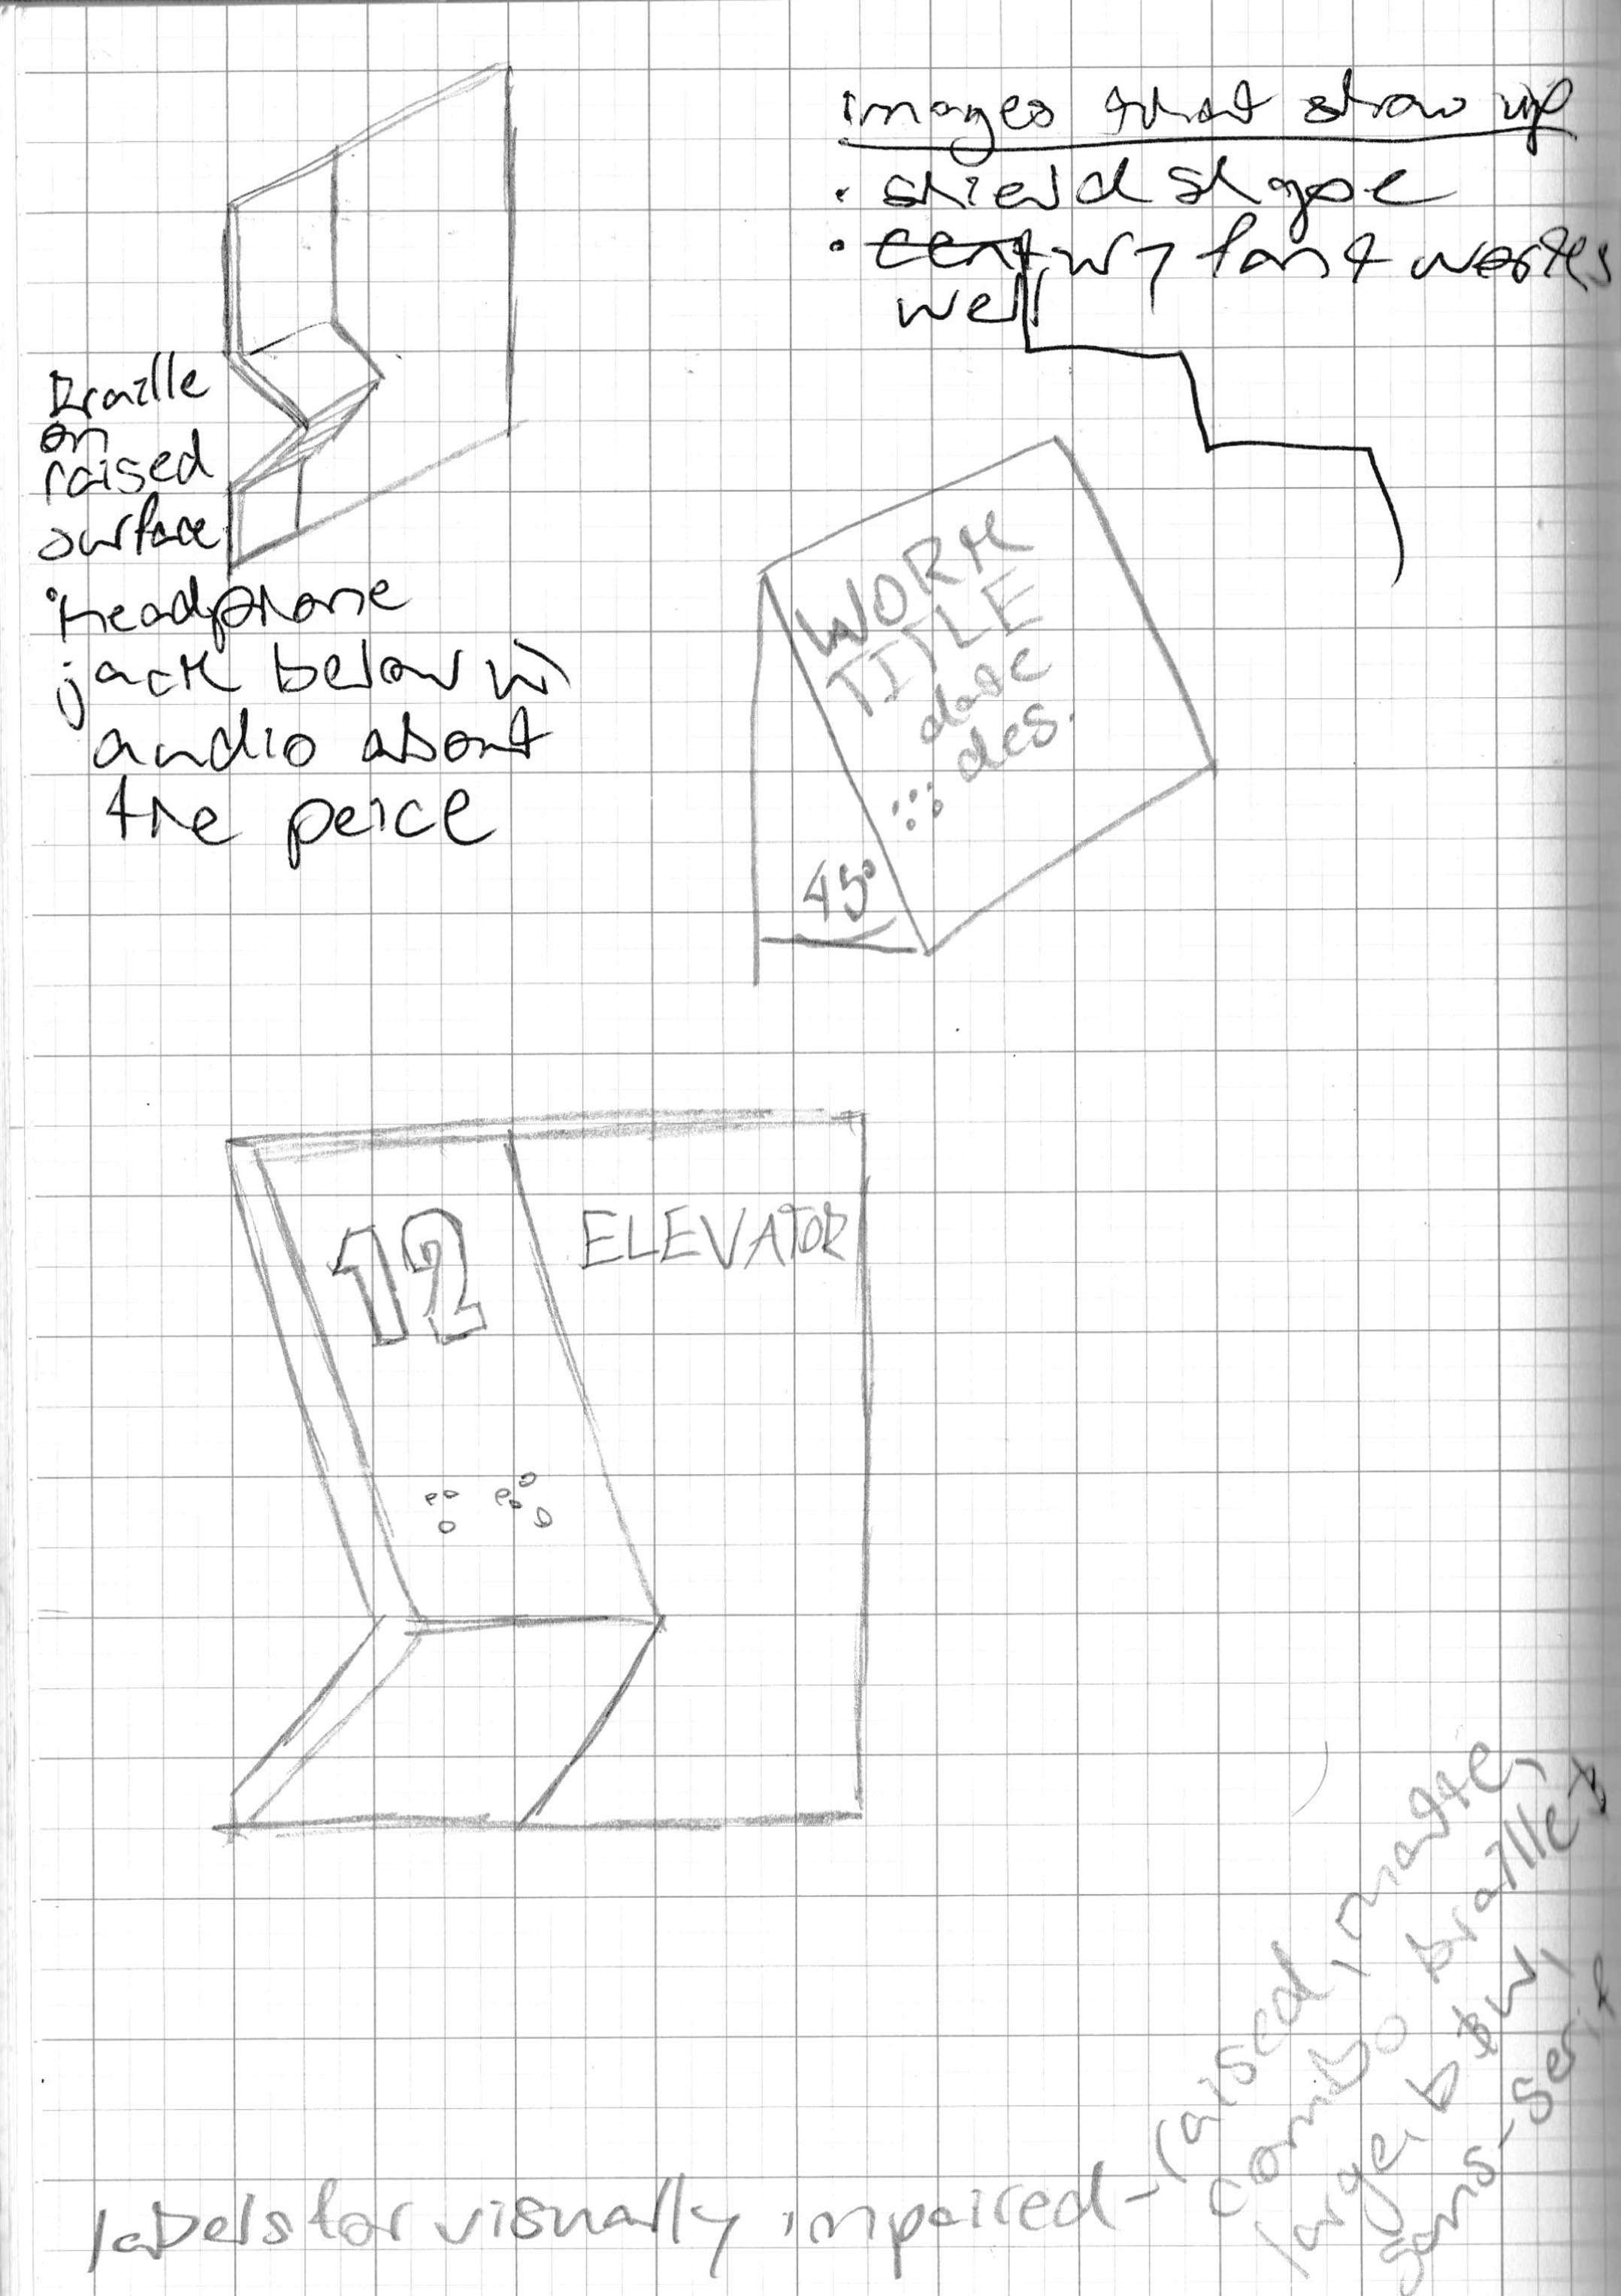 images that show up
• shield shape
• century font works
well
Braille
on
raised
surface
• Headphone
jack below w/
audio about
the peice
WORK
TITLE
date
des.
45°
12
ELEVATOR
labels for visually impaired - raised, matte,
combo braille &
large, b & w,
sans-serif